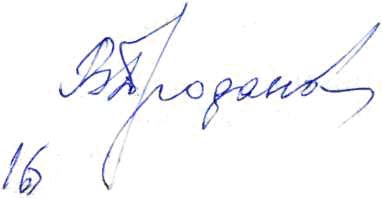 ВПроданов
16